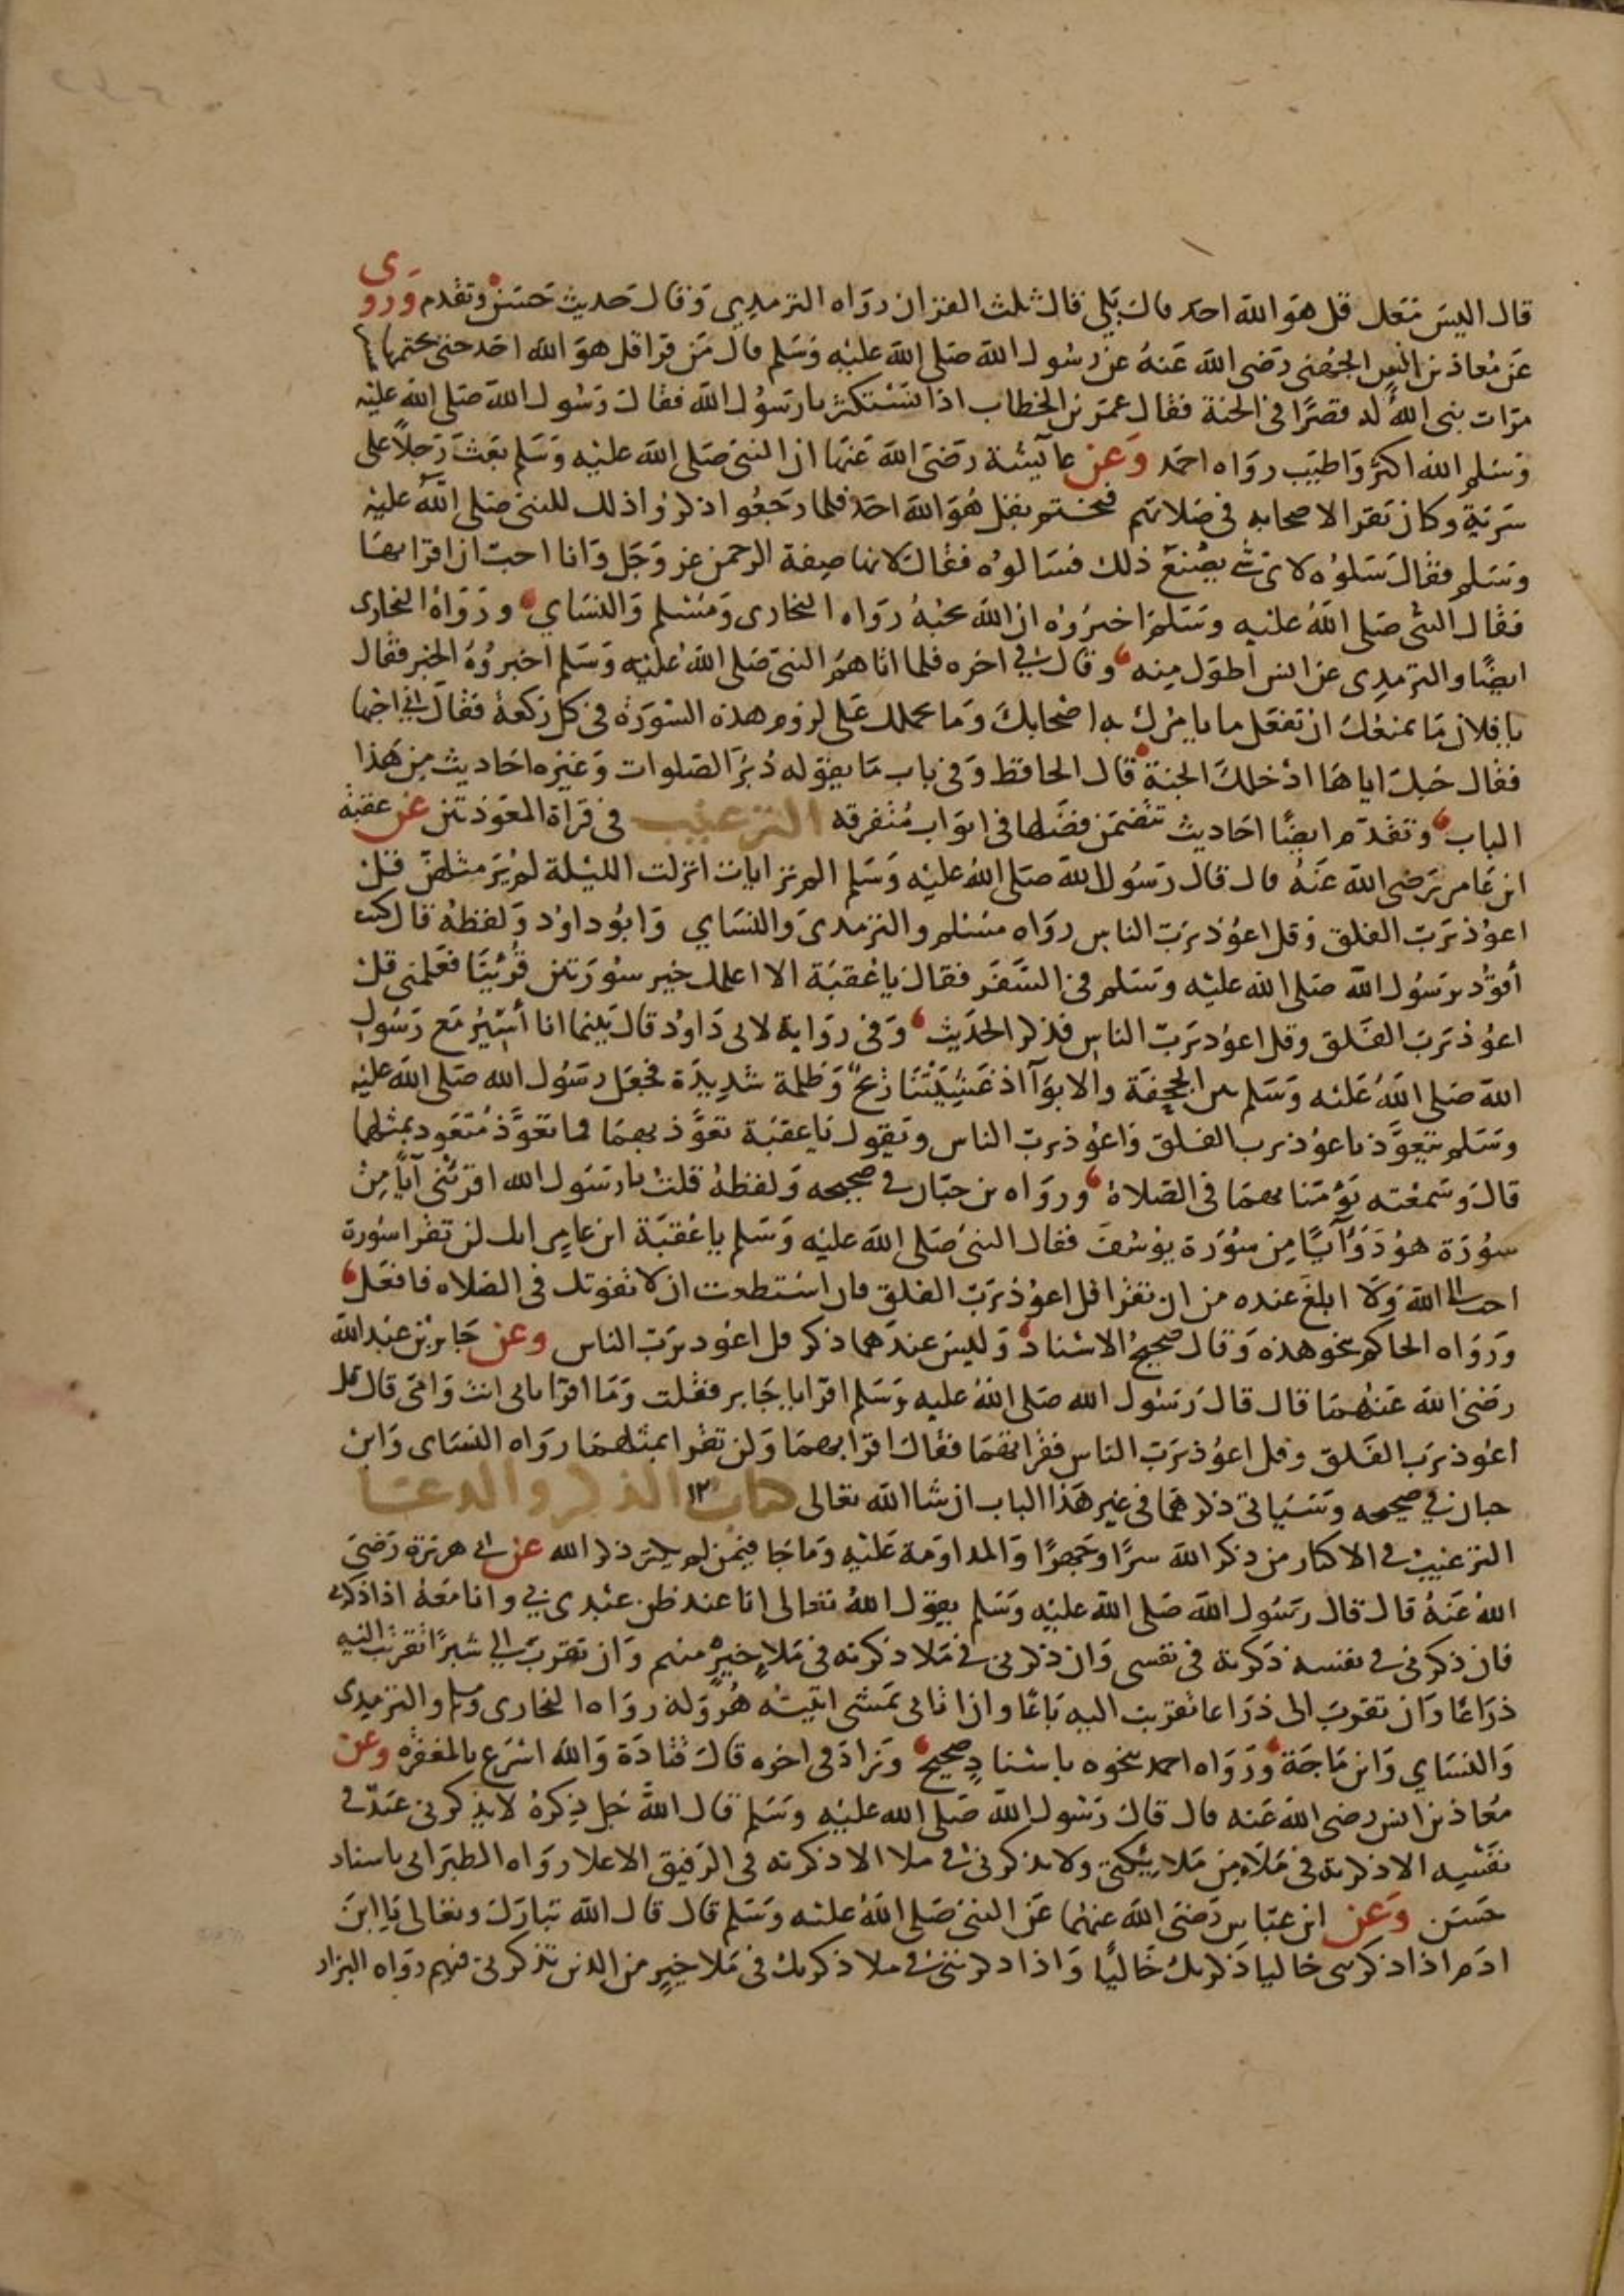 قال اليس معك قل هو الله احد قال بلى قال ثلث القران رواه الترمذي وقال حديث حسن وتقدم وروى
عن معاذ بن انس الجهني رضى الله عنه عن رسول الله صلى الله عليه وسلم قال من قرا قل هو الله احد حتى يختمها
مرات بنى الله له قصرا في الجنة فقال عمر بن الخطاب اذا نستكثر يا رسول الله فقال رسول الله صلى الله عليه
وسلم الله اكثر واطيب رواه احمد وعن عائيشة رضى الله عنها ان النبى صلى الله عليه وسلم بعث رجلا على
سرية وكان يقرا لاصحابه في صلاتهم فيختم بقل هو الله احد فلما رجعوا ذكروا ذلك للنبى صلى الله عليه
وسلم فقال سلوه لاى شي يصنع ذلك فسالوه فقال لانها صفة الرحمن عز وجل وانا احب ان اقرا بها
فقال النبي صلى الله عليه وسلم اخبروه ان الله يحبه رواه البخارى ومسلم والنساي ورواه البخارى
ايضا والترمذى عن انس اطول منه وقال في اخره فلما اتاهم النبى صلى الله عليه وسلم اخبروه الخبر فقال
يا فلان ما يمنعك ان تفعل ما يامرك به اصحابك وما يحملك على لزوم هذه السورة في كل ركعة فقال انى احبها
فقال حبك اياها ادخلك الجنة قال الحافظ وفي باب ما يقوله دبر الصلوات وغيره احاديث من هذا
الباب وتقدم ايضا احاديث تتضمن فضلها في ابواب متفرقه الترغيب في قراة المعوذتين عن عقبة
ابن عامر رضى الله عنه قال قال رسول الله صلى الله عليه وسلم الم تر ايات انزلت الليلة لم ير مثلهن قل
اعوذ برب الفلق وقل اعوذ برب الناس رواه مسلم والترمذى والنساي وابو داود ولفظه قال كنت
أقود برسول الله صلى الله عليه وسلم في السفر فقال يا عقبة الا اعلمك خير سورتين قريتا فعلمنى قل
اعوذ برب الفلق وقل اعوذ برب الناس فذكر الحديث وفي رواية لابى داود قال بينما انا أسير مع رسول
الله صلى الله عليه وسلم بين الجحفة والابوآ اذ غشيتنا ريح وظلمة شديدة فجعل رسول الله صلى الله عليه
وسلم يتعوذ باعوذ برب الفلق واعوذ برب الناس ويقول يا عقبة تعوذ بهما فما تعوذ متعوذ بمثلهما
قال وسمعته يؤمنا بهما في الصلاة ورواه بن حبان في صحيحه ولفظه قلت يا رسول الله اقرئنى آيا من
سورة هود وآيا من سورة يوسف فقال النبى صلى الله عليه وسلم يا عقبة ابن عامر انك لن تقرا سورة
احب الى الله ولا ابلغ عنده من ان تقرا قل اعوذ برب الفلق فان استطعت ان لا تفوتك في الصلاه فافعل
ورواه الحاكم بنحو هذه وقال صحيح الاسناد وليس عندهما ذكر قل اعوذ برب الناس وعن جابر بن عبد الله
رضى الله عنهما قال قال رسول الله صلى الله عليه وسلم اقرا يا جابر فقلت وما اقرا بابى انت وامى قال قل
اعوذ برب الفلق وقل اعوذ برب الناس فقراتهما فقال اقرا بهما ولن تقرا بمثلهما رواه النساى وابن
حبان في صحيحه وسياتى ذكرهما في غير هذا الباب ان شا الله تعالى كتاب الذكر والدعا
الترغيب في الاكثار من ذكر الله سرا وجهرا والمداومة عليه وما جا فيمن لم يكثر ذكر الله عن ابى هريرة رضى
الله عنه قال قال رسول الله صلى الله عليه وسلم يقول الله تعالى انا عند ظن عبدى بي وانا معه اذا ذكرنى
فان ذكرنى في نفسه ذكرته في نفسى وان ذكرنى في ملا ذكرته في ملا خير منهم وان تقرب الي شبرا تقربت اليه
ذراعا وان تقرب الى ذراعا تقربت اليه باعا وان اتانى يمشى اتيته هرولة رواه البخارى ومسلم والترمذى
والنساي وابن ماجة ورواه احمد بنحوه باسناد صحيح وزاد في اخره قال قتادة والله اسرع بالمغفره وعن
معاذ بن انس رضى الله عنه قال قال رسول الله صلى الله عليه وسلم قال الله جل ذكره لا يذكرنى عبد في
نفسه الا ذكرته في ملا من ملايكتى ولا يذكرنى في ملا الا ذكرته في الرفيق الاعلا رواه الطبرانى باسناد
حسن وعن ابن عباس رضى الله عنهما عن النبى صلى الله عليه وسلم قال قال الله تبارك وتعالى يا ابن
ادم اذا ذكرتنى خاليا ذكرتك خاليا واذا ذكرتنى في ملا ذكرتك في ملا خير من الذين تذكرنى فيهم رواه البزار